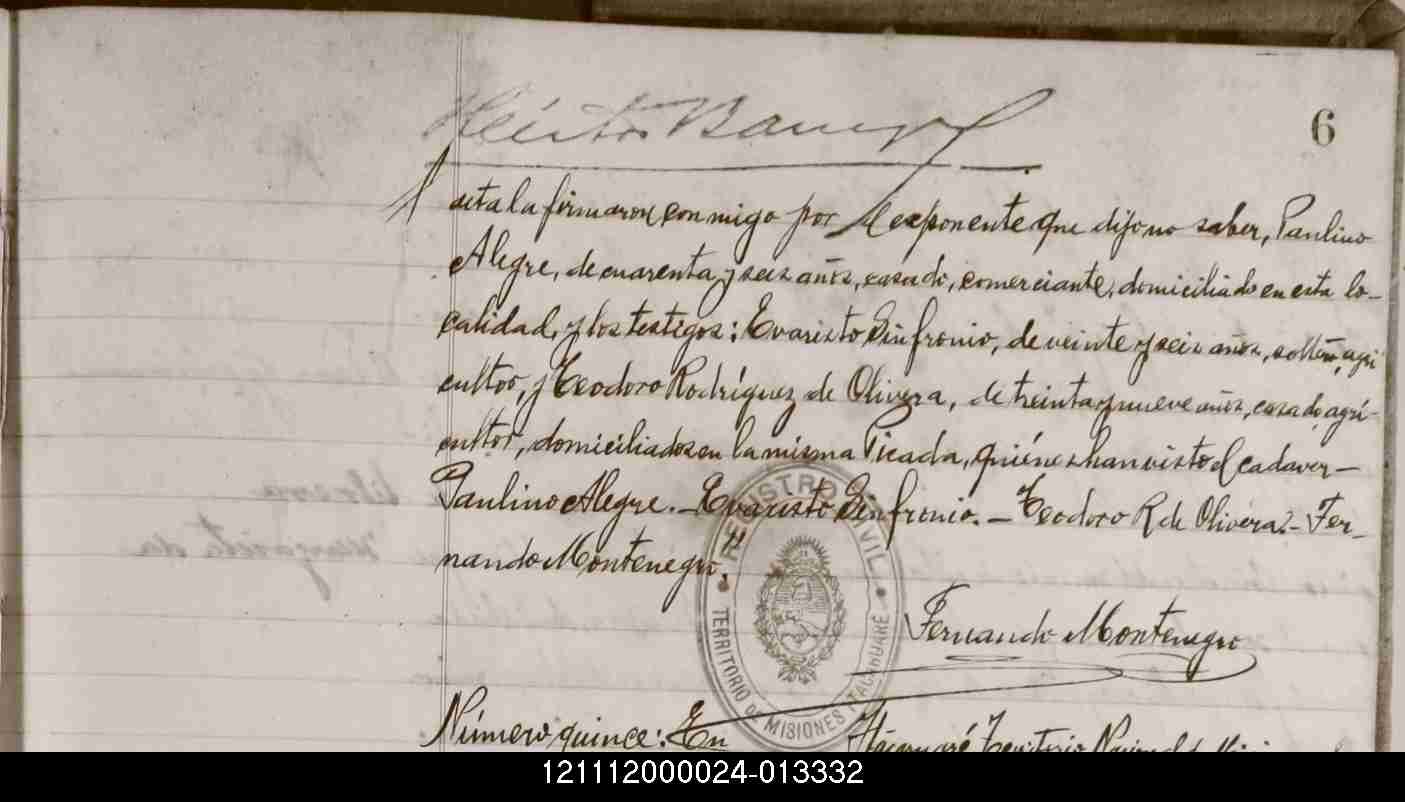 Héctor Baru
6
Acta la firmaron conmigo por el exponente que dijo no saber, Paulino
Alegre, de cuarenta y seis años, casado, comerciante, domiciliado en esta lo-
calidad, y los testigos: Evaristo Sinfronio, de veinte y seis años, soltero, agri
cultor, y Teodoro Rodríguez de Olivera, de treinta y nueve años, casado, agri-
cultor, domiciliados en la misma Picada, quiénes han visto el cadaver—
Paulino Alegre.— Evaristo Sinfronio.— Teodoro R de Olivera.— Fer-
nando Montenegro.
REGISTRO CIVIL
TERRITORIO DE MISIONES ITACARUARE
Fernando Montenegro
Número quince: En
Territorio
121112000024-013332